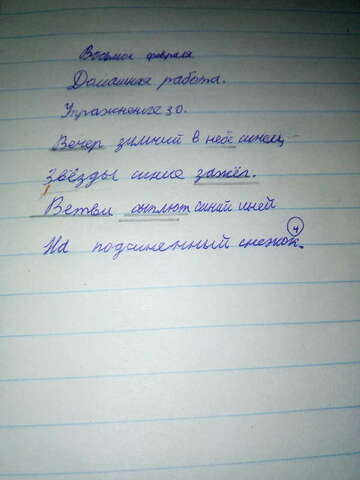 Восьмое февраля
Домашняя работа.
Упражнение 30.
Вечер зимний в небе синем
Звёзды синие зажёг.
Ветви сыплют синий иней
На подсиненный снежок.
4